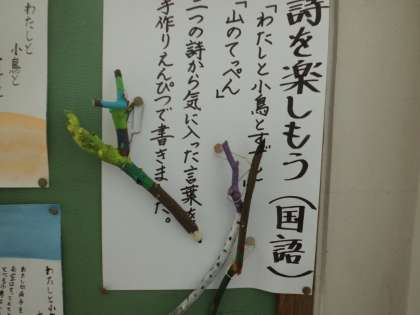 詩を楽しもう(国語)
「わたしと小鳥とすずと」
「山のてっぺん」
二つの詩から気に入った言葉を
手作りえんぴつで書きました。
わたしと
小鳥と
わたしと小